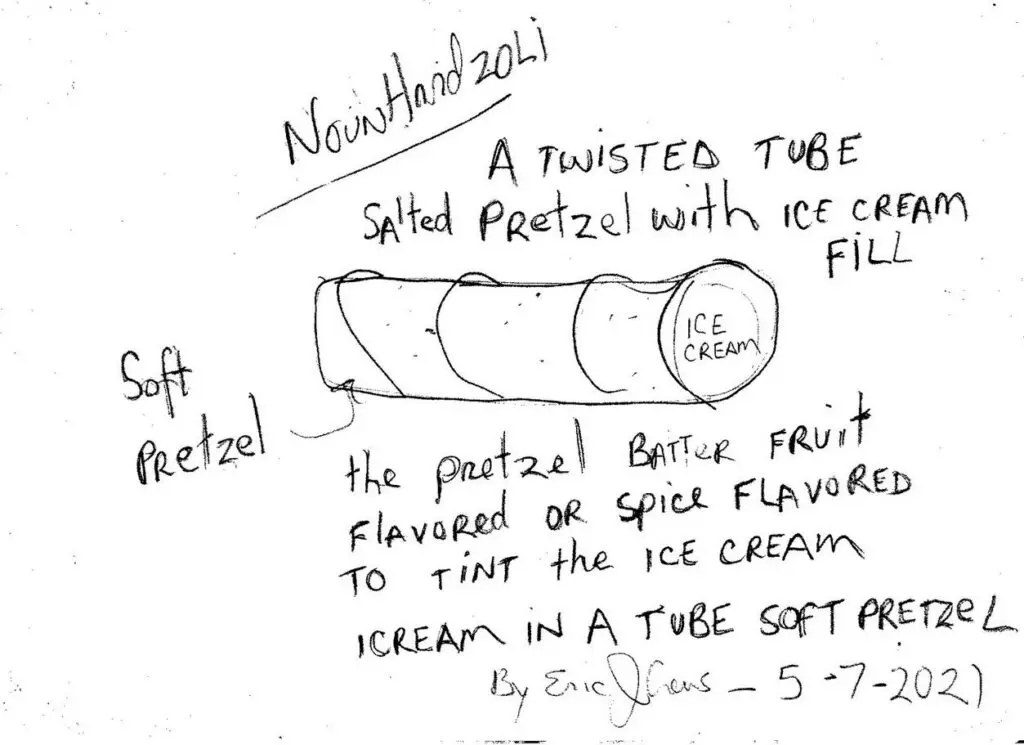 NounHandzoli
A TWISTED TUBE
SAlted PRetzel with ICE CREAM
FILL
ICE
CREAM
Soft
PRetzel
the pretzel BATTeR FRUIT
FlAVORed OR Spice FLAVORED
TO TINT the ICE CREAM
ICREAM IN A TUBE SOFT PRETZeL
By Eric - 5-7-2021